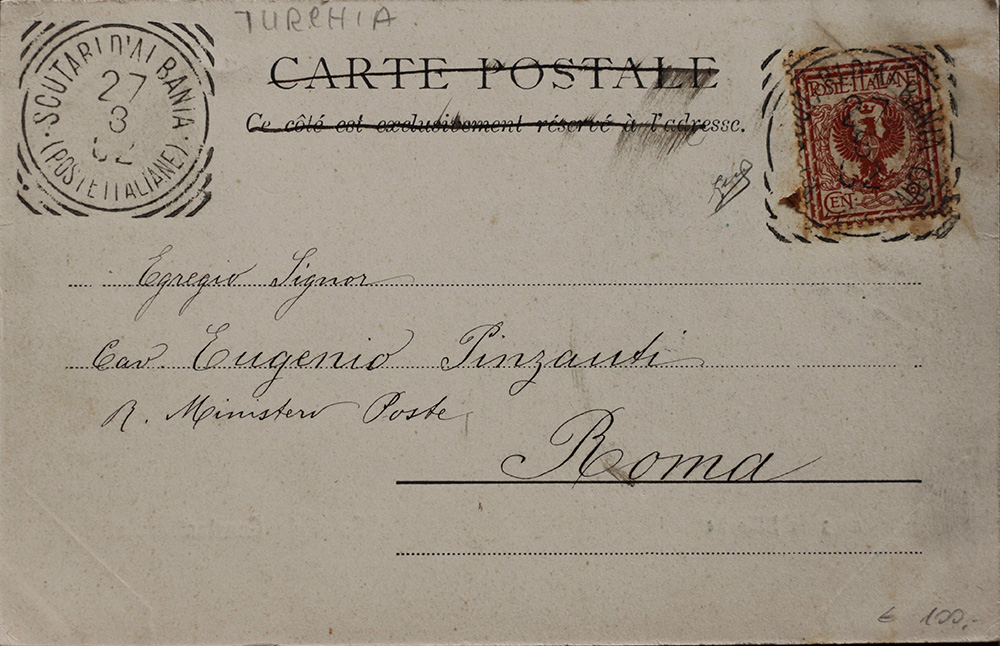 TURCHIA
SCUTARI D'ALBANIA
27
3
02
(POSTE ITALIANE)
CARTE POSTALE
Ce côté est exclusivement réservé à l'adresse.
POSTE ITALIANE
CEN.
Egregio Signor
Cav. Eugenio Pinzauti
R. Ministero Poste
Roma
€ 100,-